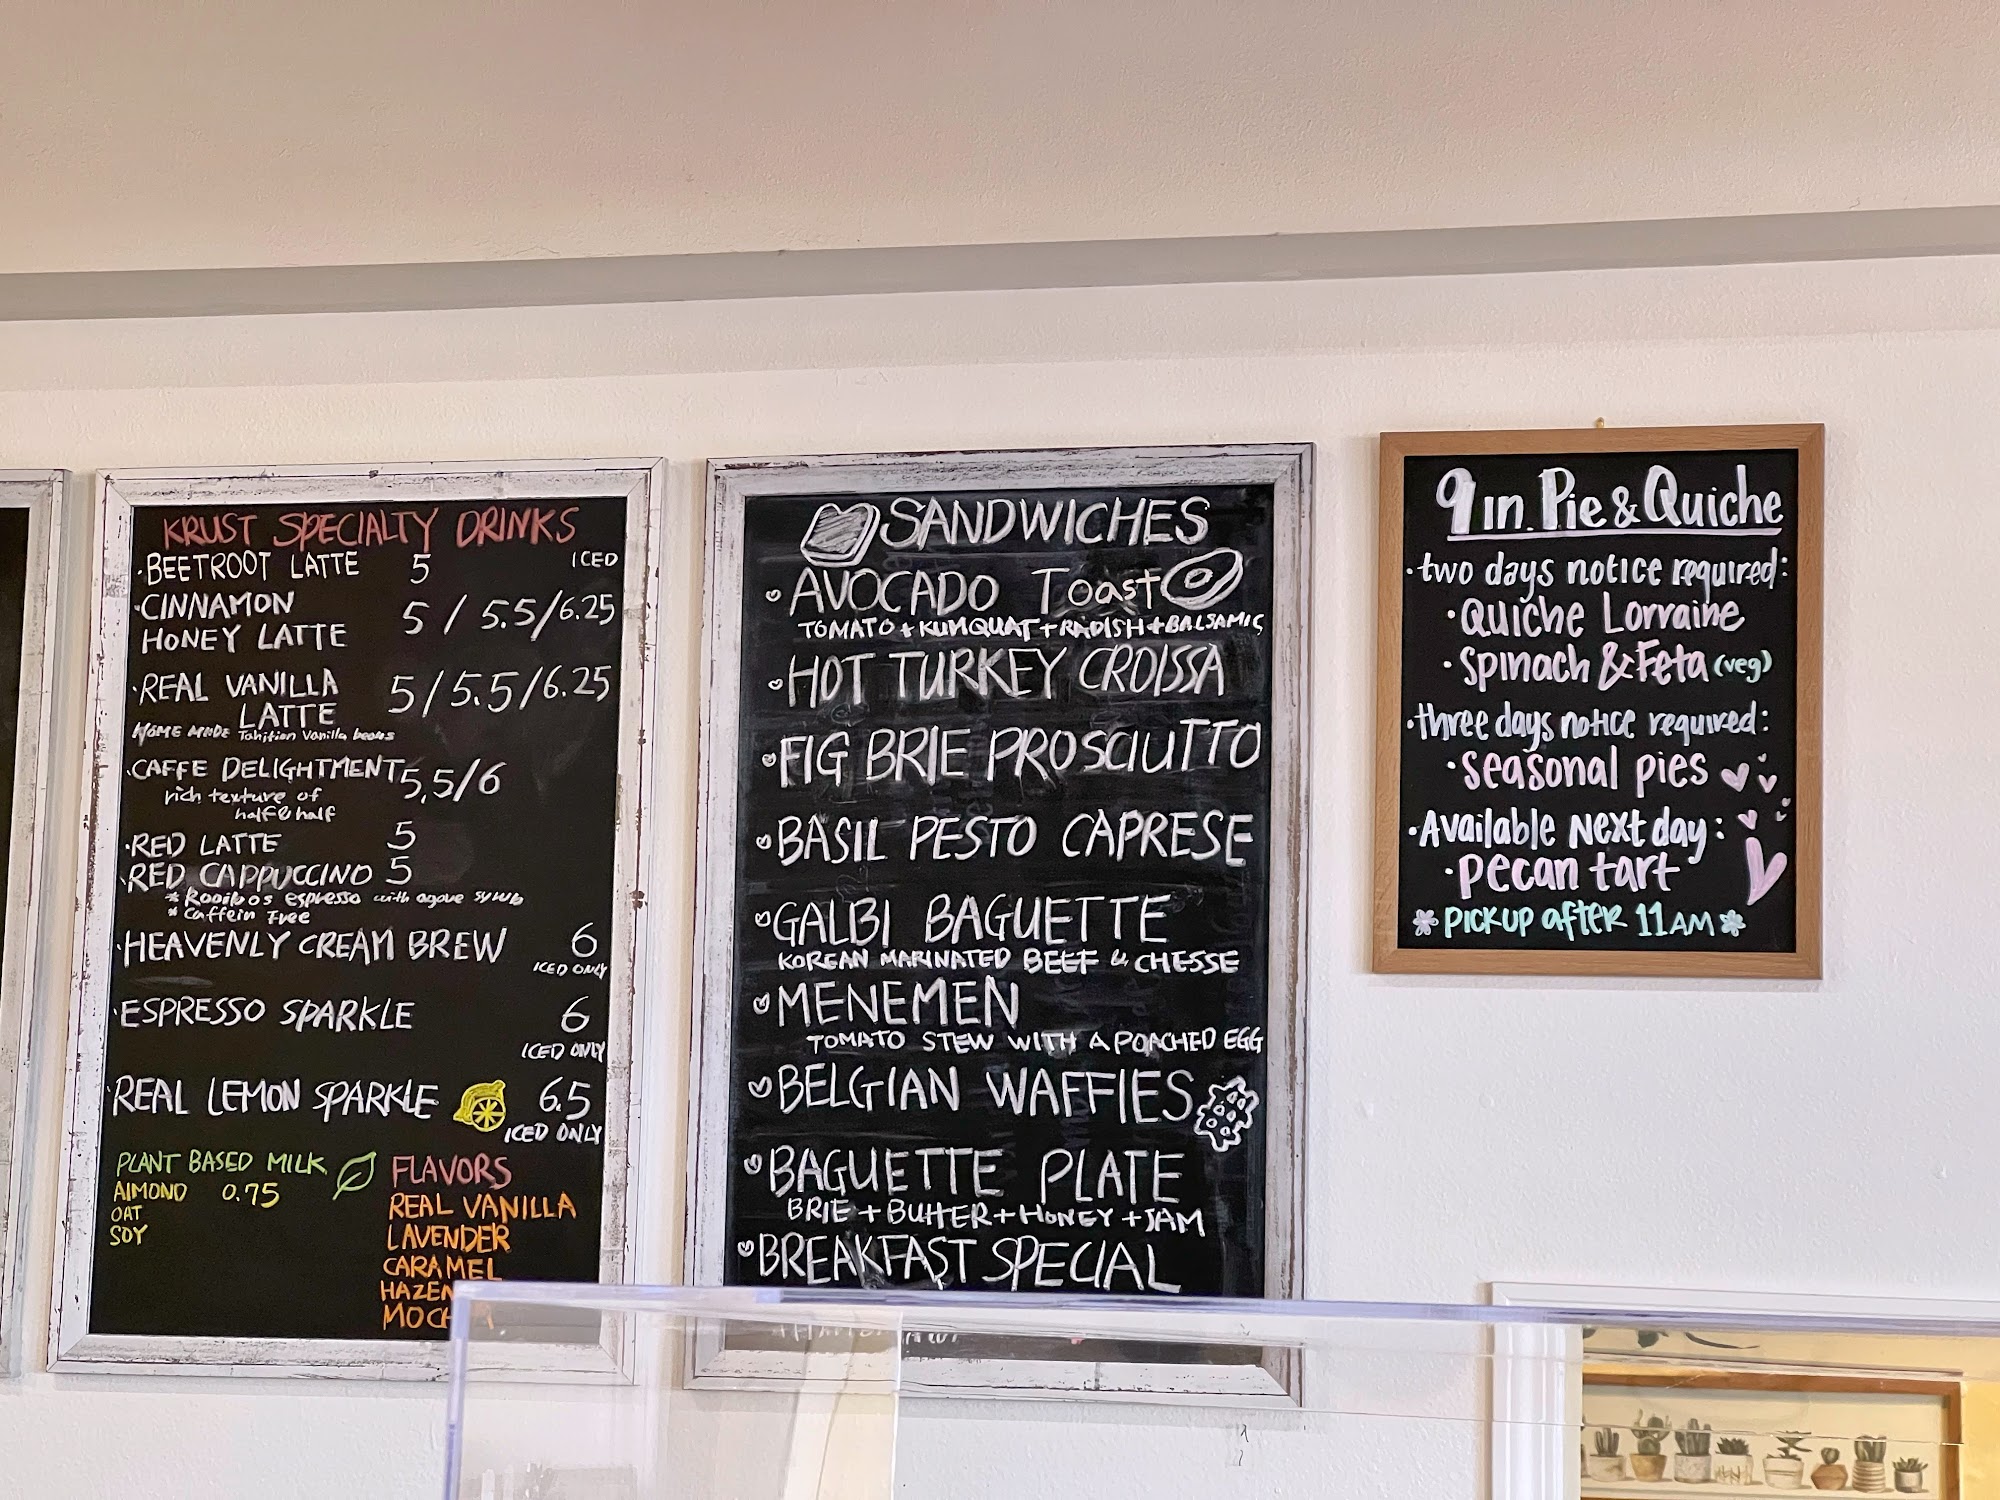 KRUST SPECIALTY DRINKS
ICED
·BEETROOT LATTE 5
·CINNAMON
HONEY LATTE 5 / 5.5/6.25
·REAL VANILLA
LATTE 5/5.5/6.25
HOME MADE Tahitian Vanilla beans
·CAFFE DELIGHTMENT 5.5/6
rich texture of
half&half
·RED LATTE 5
·RED CAPPUCCINO 5
* Rooibos espresso with agave syrup
* Caffein Free
·HEAVENLY CREAM BREW 6
ICED ONLY
·ESPRESSO SPARKLE 6
ICED ONLY
·REAL LEMON SPARKLE 6.5
ICED ONLY
PLANT BASED MILK
ALMOND 0.75
OAT
SOY
FLAVORS
REAL VANILLA
LAVENDER
CARAMEL
HAZEN
MOCHA
SANDWICHES
AVOCADO Toast
TOMATO + KUMQUAT + RADISH + BALSAMIC
HOT TURKEY CROISSA
FIG BRIE PROSCIUTTO
BASIL PESTO CAPRESE
GALBI BAGUETTE
KOREAN MARINATED BEEF & CHESSE
MENEMEN
TOMATO STEW WITH A POACHED EGG
BELGIAN WAFFLES
BAGUETTE PLATE
BRIE + BUTTER + HONEY + JAM
BREAKFAST SPECIAL
9 in. Pie & Quiche
·two days notice required:
·Quiche Lorraine
·Spinach & Feta (veg)
·three days notice required:
·seasonal pies
·Available Next day:
·pecan tart
PICKUP after 11AM